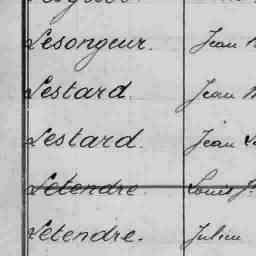 Lesongeur. Jean
Lestard. Jean
Lestard. Jean
Letendre. Louis
Letendre. Julien